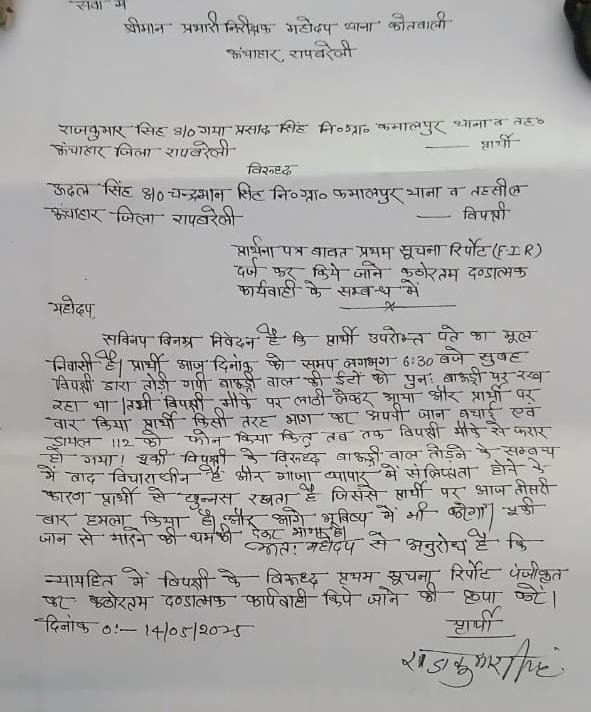 सेवा में
श्रीमान प्रभारी निरीक्षक महोदय थाना कोतवाली
ऊंचाहार, रायबरेली
राजकुमार सिंह S/O गया प्रसाद सिंह नि०ग्रा० कमालपुर थाना व तह०
ऊंचाहार जिला रायबरेली — प्रार्थी
विरुध्द
ऊदल सिंह S/O चन्द्रभान सिंह नि०ग्रा० कमालपुर थाना व तहसील
ऊंचाहार जिला रायबरेली — विपक्षी
प्रार्थना पत्र बावत प्रथम सूचना रिर्पोट (F.I.R)
दर्ज कर किये जाने कठोरतम दण्डात्मक
कार्यवाही के सम्बन्ध में
महोदय,
सविनय विनम्र निवेदन है कि प्रार्थी उपरोक्त पते का मूल
निवासी है। प्रार्थी आज दिनांक को समय लगभग 6:30 बजे सुबह
विपक्षी द्वारा तोड़ी गयी बाउंड्री वाल की ईटों को पुनः बाउंड्री पर रख
रहा था। तभी विपक्षी मौके पर लाठी लेकर आया और प्रार्थी पर
वार किया प्रार्थी किसी तरह भाग कर अपनी जान बचाई एवं
डायल 112 को फोन किया किंतु तब तक विपक्षी मौके से फरार
हो गया। चूकी विपक्षी के विरुध्द बाउंड्री वाल तोड़ने के सम्बन्ध
में वाद विचाराधीन है और गांजा व्यापार में संलिप्तता होने के
कारण प्रार्थी से खुन्नस रखता है जिससे प्रार्थी पर आज तीसरी
बार हमला किया है। और आगे भविष्य में भी करेगा। चूकी
जान से मारने की धमकी देकर भागा है।
अतः महोदय से अनुरोध है कि
न्यायहित में विपक्षी के विरुध्द प्रथम सूचना रिर्पोट पंजीकृत
कर कठोरतम दण्डात्मक कार्यवाही किये जाने की कृपा करें।
दिनांक ०:- 14/05/2025 प्रार्थी
राजकुमार सिंह